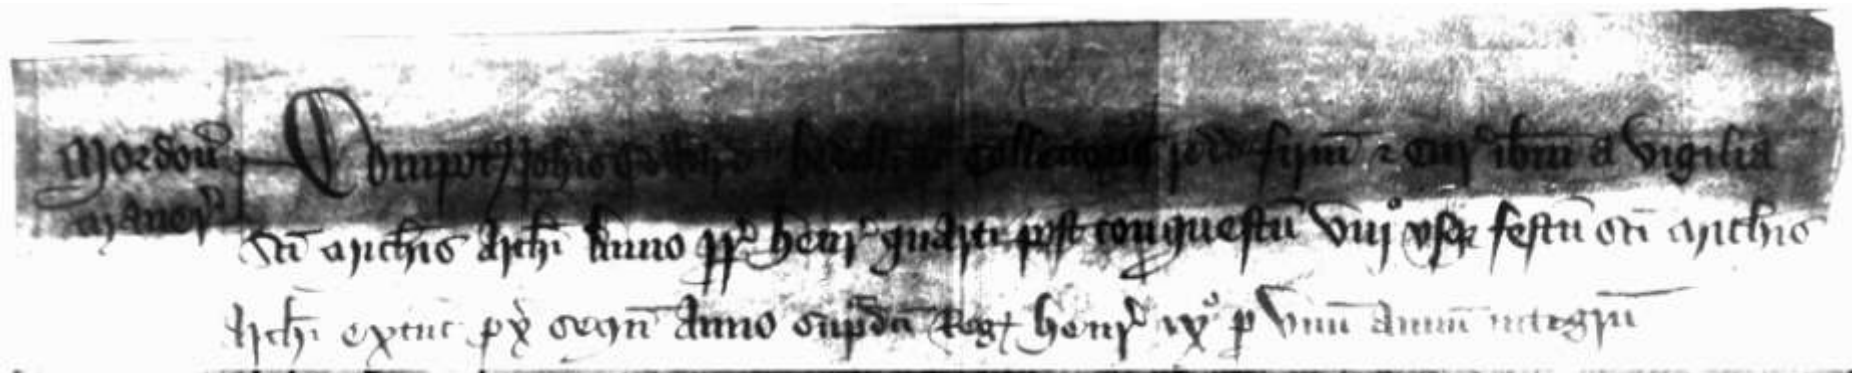 Mordon̄
Maner̄
Compot̄ Joħis bedelli collectoris redd firm̄ ⁊ cur̄ ibm̄ a vigilia
Sc̄i Micħis Arcħi Anno r̄r̄ henr̄ quarti post conquestū viijº usqȝ festū Sc̄i Micħis
Arcħi extūc px̄ sequn̄ Anno sup̄dc̄i Reḡ henr̄ ixº p vnū Annū integrū